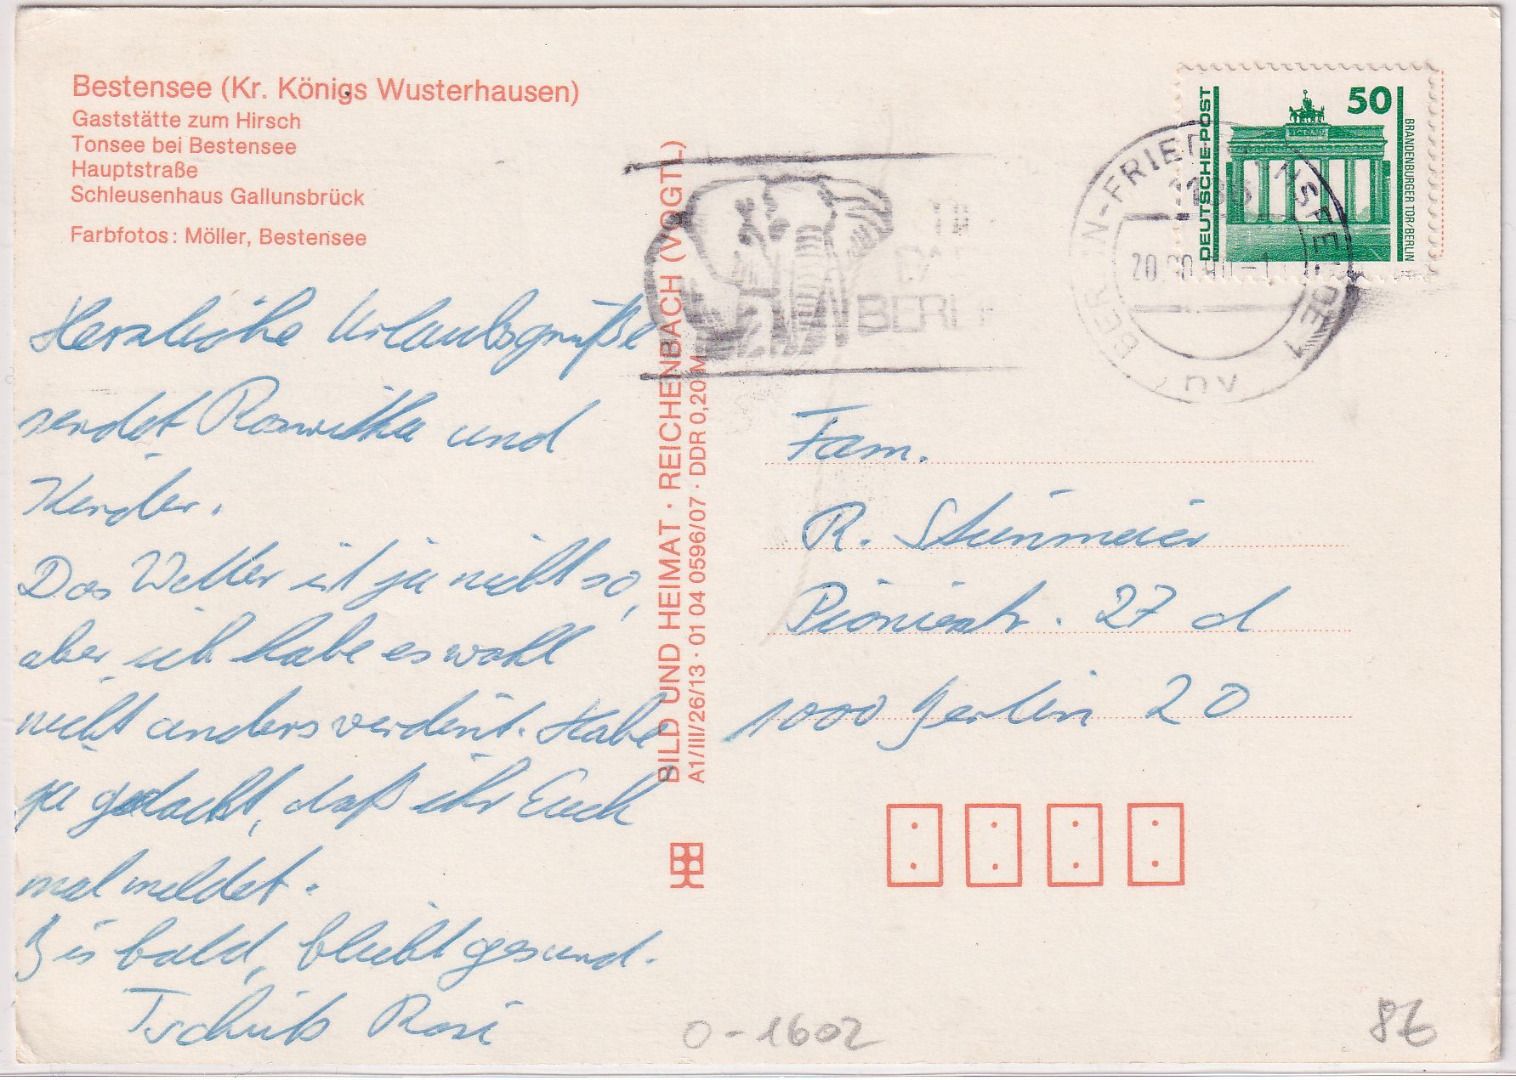 Bestensee (Kr. Königs Wusterhausen)
Gaststätte zum Hirsch
Tonsee bei Bestensee
Hauptstraße
Schleusenhaus Gallunsbrück
Farbfotos: Möller, Bestensee
Herzliche Urlaubsgrüße
sendet Roswitha und
Kinder.
Das Wetter ist ja nicht so,
aber ich habe es wohl
nicht anders verdient. Habe
ja gedacht, daß ihr Euch
mal meldet.
Bis bald, bleibt gesund.
Tschüß Rosi
BILD UND HEIMAT · REICHENBACH (VOGTL)
A1/III/26/13 · 01 04 0596/07 · DDR 0,20 M
BERLI
DEUTSCHE POST
50
BRANDENBURGER TOR/BERLIN
1136
20. 90-1
Fam.
R. Steinmeier
Pionierstr. 27 d
1000 Berlin 20
0-1602
86